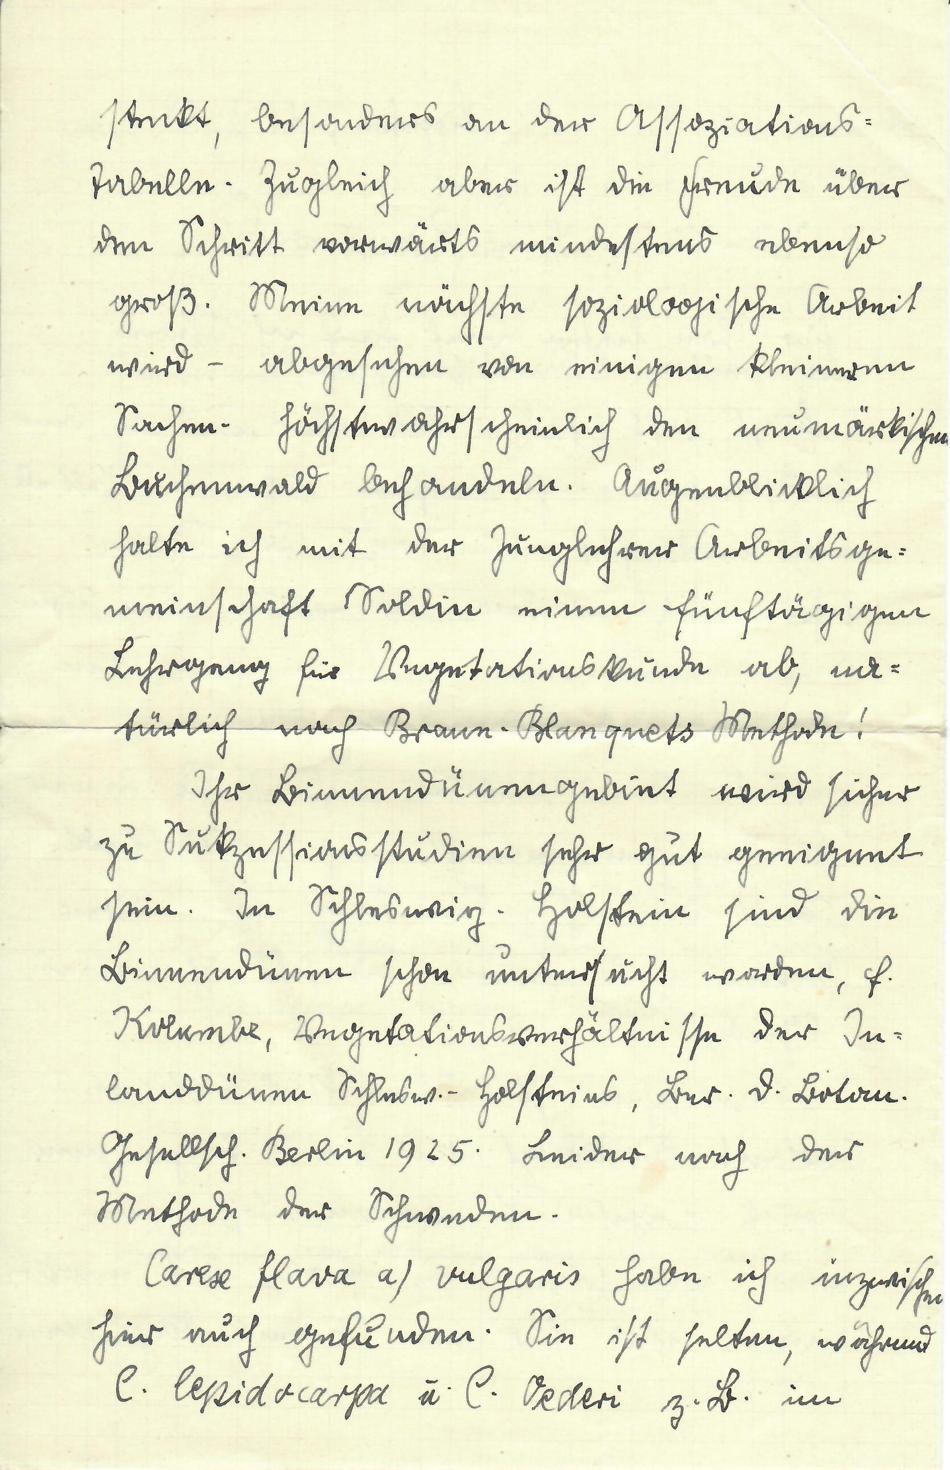 steckt, besonders an der Assoziations=
tabelle. Zugleich aber ist die Freude über
den Schritt vorwärts mindestens ebenso
groß. Meine nächste soziologische Arbeit
wird – abgesehen von einigen kleineren
Sachen – höchstwahrscheinlich den neumärkischen
Buchenwald behandeln. Augenblicklich
halte ich mit der Junglehrer Arbeitsge=
meinschaft Soldin einen fünftägigen
Lehrgang für Vegetationskunde ab, na=
türlich nach Braun-Blanquets Methode!
Ihr Binnendünengebiet wird sicher
zu Sukzessionsstudien sehr gut geeignet
sein. In Schleswig-Holstein sind die
Binnendünen schon untersucht worden, cf.
Kolumbe, Vegetationsverhältnisse der In=
landdünen Schlesw.-Holsteins, Ber. d. Botan.
Gesellsch. Berlin 1925. Leider nach der
Methode der Schweden.
Carex flava a) vulgaris habe ich inzwischen
hier auch gefunden. Sie ist selten, während
C. lepidocarpa u. C. Oederi z. B. im